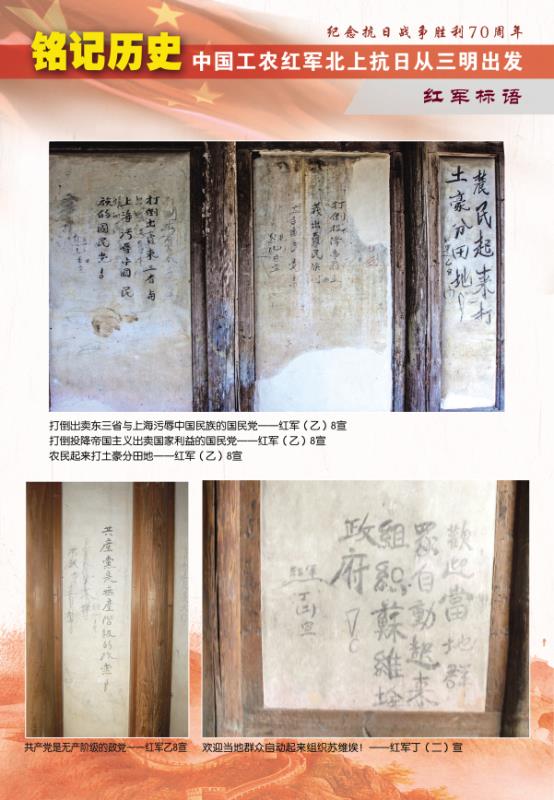 纪念抗日战争胜利70周年
铭记历史 中国工农红军北上抗日从三明出发
红军标语
農民起来打
土豪分田地
打倒出賣東三省与
上海污辱中國民
族的國民党
打倒出卖东三省与上海污辱中国民族的国民党——红军（乙）8宣
打倒投降帝国主义出卖国家利益的国民党——红军（乙）8宣
农民起来打土豪分田地——红军（乙）8宣
共產黨是無產階級的政黨
歡迎當地群
眾自動起来
組織蘇維埃
政府
紅軍
丁(二)宣
共产党是无产阶级的政党——红军乙8宣
欢迎当地群众自动起来组织苏维埃！——红军丁（二）宣